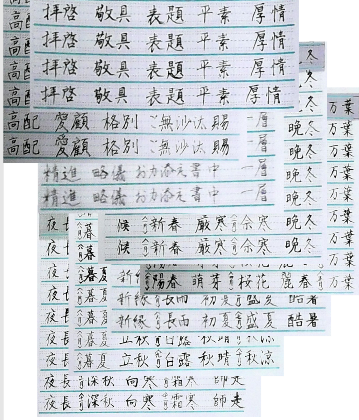 拝啓 敬具 表題 平素 厚情
拝啓 敬具 表題 平素 厚情
拝啓 敬具 表題 平素 厚情
高配 拝啓 敬具 表題 平素 厚情
高配 愛顧 格別 ご無沙汰 賜 一層 晩冬 万葉
高配 愛顧 格別 ご無沙汰 賜 一層 晩冬 万葉
精進 略儀 お力添え 書中 一層 晩冬 万葉
精進 略儀 お力添え 書中 一層 晩冬 万葉
夜長 暮 候 新春 厳寒 余寒 晩冬 万葉
暮 候 新春 厳寒 余寒 晩冬 万葉
夜長 暮夏 新 陽春 萌芽 桜花 麗春 万葉
夜長 暮夏 新緑 長雨 初夏 盛夏 酷暑
夜長 暮夏 新緑 長雨 初夏 盛夏 酷暑
夜長 暮夏 立秋 白露 秋晴 秋涼
夜長 暮夏 立秋 白露 秋晴 秋涼
夜長 深秋 向寒 霜寒 師走
夜長 深秋 向寒 霜寒 師走